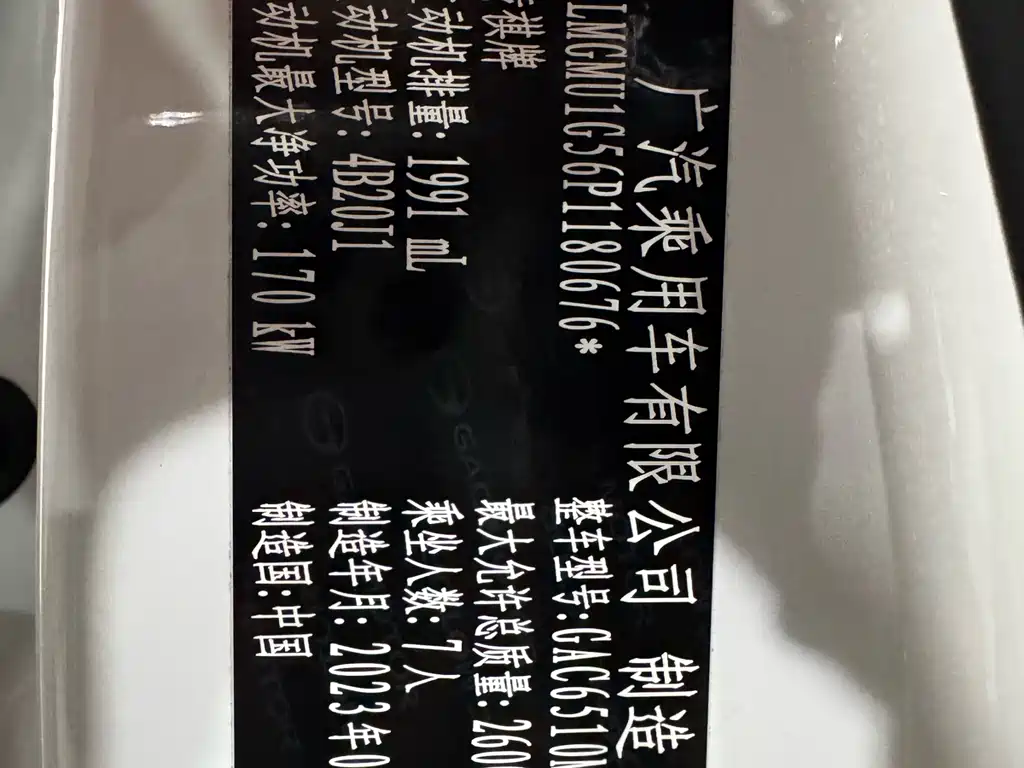 广汽乘用车有限公司 制造
LMGMU1G56P1180676*
整车型号:GAC6510
祺牌
最大允许总质量:260
动机排量: 1991 mL
乘坐人数: 7人
动机型号: 4B20J1
制造年月: 2023年0
动机最大净功率: 170 kW
制造国:中国